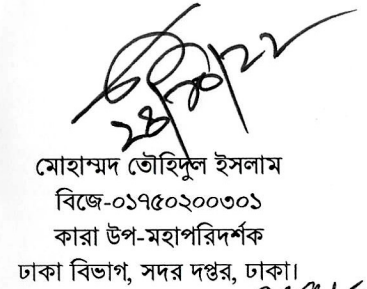 মোহাম্মদ তৌহিদুল ইসলাম
বিজে-০১৭৫০২০০৩০১
কারা উপ-মহাপরিদর্শক
ঢাকা বিভাগ, সদর দপ্তর, ঢাকা।